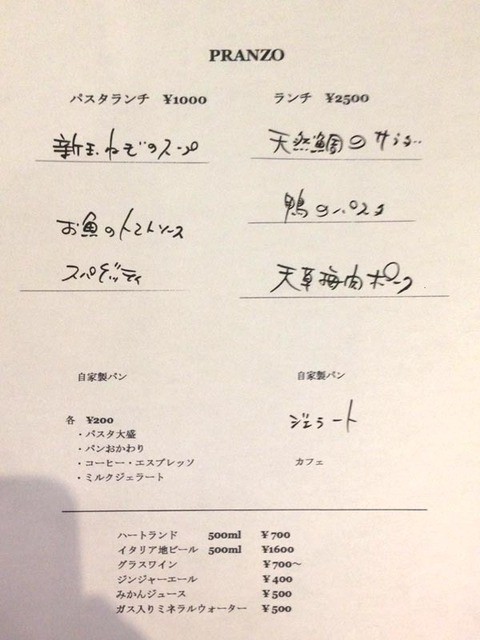 PRANZO
パスタランチ ¥1000
新玉ねぎのスープ
お魚のトマトソース
スパゲッティ
自家製パン
各 ¥200
・パスタ大盛
・パンおかわり
・コーヒー・エスプレッソ
・ミルクジェラート
ランチ ¥2500
天然鯛のサラダ
鴨のパスタ
天草梅肉ポーク
自家製パン
ジェラート
カフェ
ハートランド 500ml ¥700
イタリア地ビール 500ml ¥1600
グラスワイン ¥700～
ジンジャーエール ¥400
みかんジュース ¥500
ガス入りミネラルウォーター ¥500